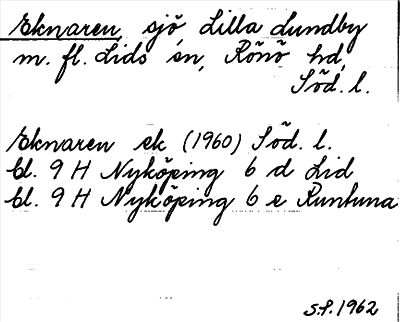 Eknaren, sjö Lilla Lundby
m. fl. Lids sn, Rönö hd,
Söd. l.
Eknaren ek (1960) Söd. l.
bl. 9 H Nyköping 6 d Lid
bl. 9 H Nyköping 6 e Runtuna
S.P. 1962